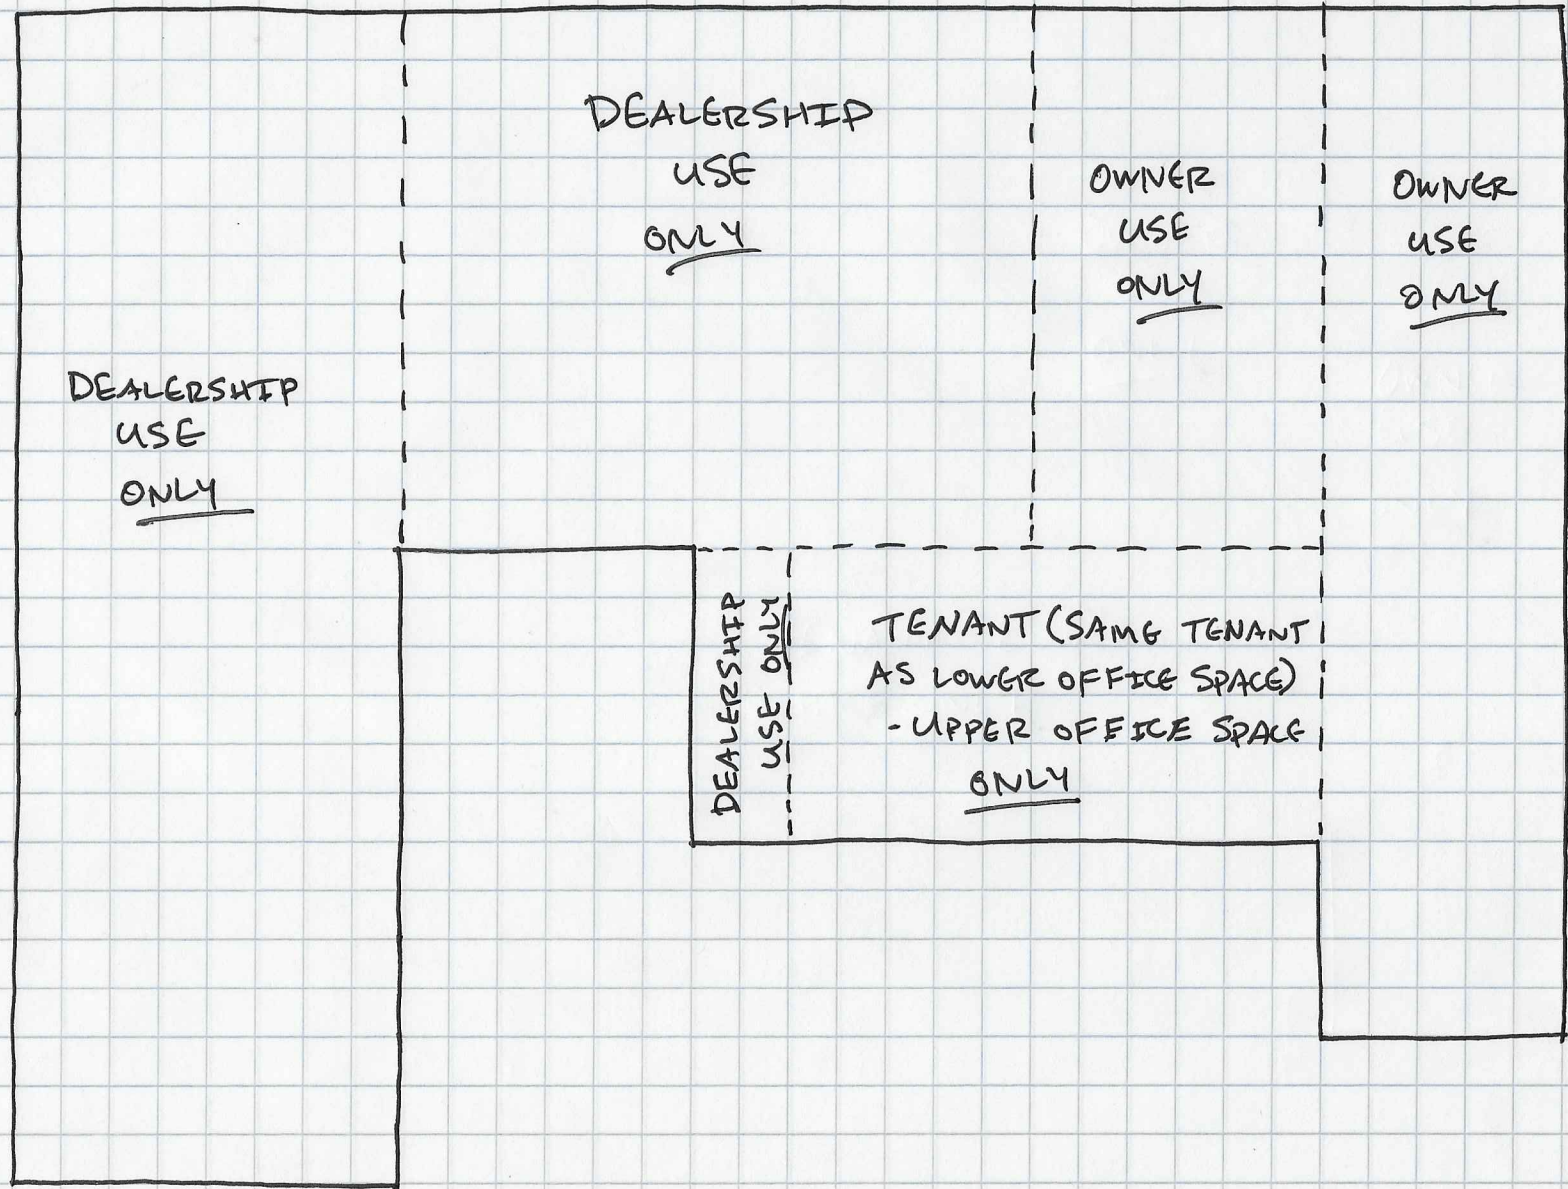 DEALERSHIP
USE
ONLY
OWNER
USE
ONLY
OWNER
USE
ONLY
DEALERSHIP
USE
ONLY
DEALERSHIP
USE ONLY
TENANT (SAME TENANT
AS LOWER OFFICE SPACE)
- UPPER OFFICE SPACE
ONLY